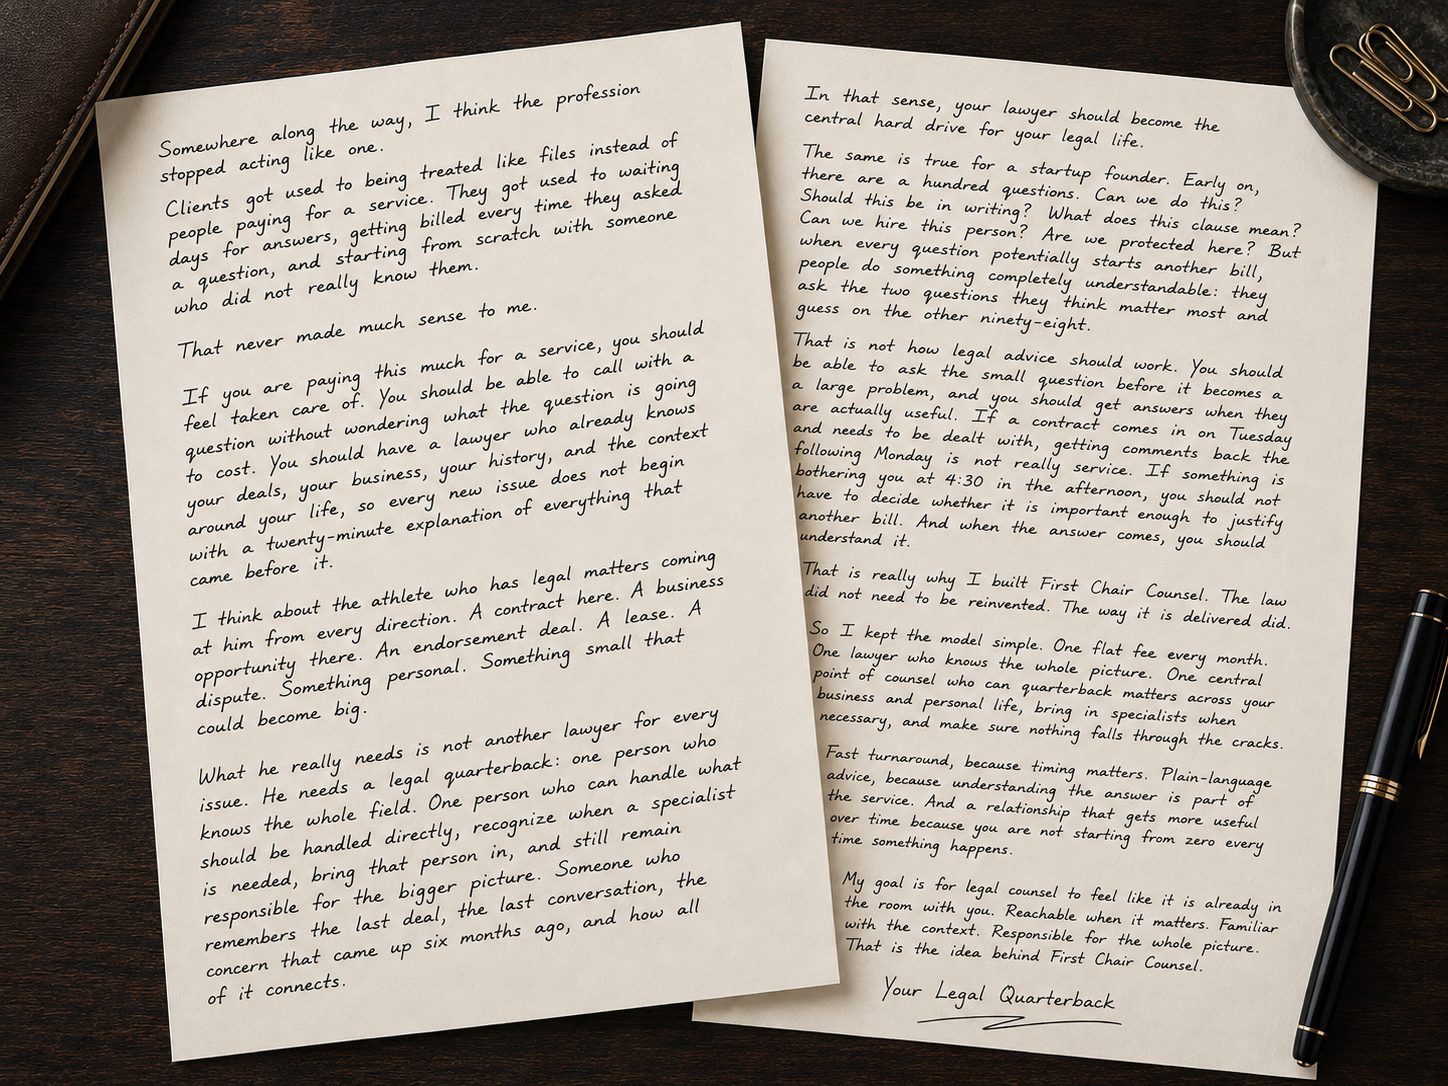 Somewhere along the way, I think the profession
stopped acting like one.
Clients got used to being treated like files instead of
people paying for a service. They got used to waiting
days for answers, getting billed every time they asked
a question, and starting from scratch with someone
who did not really know them.
That never made much sense to me.
If you are paying this much for a service, you should
feel taken care of. You should be able to call with a
question without wondering what the question is going
to cost. You should have a lawyer who already knows
your deals, your business, your history, and the context
around your life, so every new issue does not begin
with a twenty-minute explanation of everything that
came before it.
I think about the athlete who has legal matters coming
at him from every direction. A contract here. A business
opportunity there. An endorsement deal. A lease. A
dispute. Something personal. Something small that
could become big.
What he really needs is not another lawyer for every
issue. He needs a legal quarterback: one person who
knows the whole field. One person who can handle what
should be handled directly, recognize when a specialist
is needed, bring that person in, and still remain
responsible for the bigger picture. Someone who
remembers the last deal, the last conversation, the
concern that came up six months ago, and how all
of it connects.
In that sense, your lawyer should become the
central hard drive for your legal life.
The same is true for a startup founder. Early on,
there are a hundred questions. Can we do this?
Should this be in writing? What does this clause mean?
Can we hire this person? Are we protected here? But
when every question potentially starts another bill,
people do something completely understandable: they
ask the two questions they think matter most and
guess on the other ninety-eight.
That is not how legal advice should work. You should
be able to ask the small question before it becomes a
a large problem, and you should get answers when they
are actually useful. If a contract comes in on Tuesday
and needs to be dealt with, getting comments back the
following Monday is not really service. If something is
bothering you at 4:30 in the afternoon, you should not
have to decide whether it is important enough to justify
another bill. And when the answer comes, you should
understand it.
That is really why I built First Chair Counsel. The law
did not need to be reinvented. The way it is delivered did.
So I kept the model simple. One flat fee every month.
One lawyer who knows the whole picture. One central
point of counsel who can quarterback matters across your
business and personal life, bring in specialists when
necessary, and make sure nothing falls through the cracks.
Fast turnaround, because timing matters. Plain-language
advice, because understanding the answer is part of
the service. And a relationship that gets more useful
over time because you are not starting from zero every
time something happens.
My goal is for legal counsel to feel like it is already in
the room with you. Reachable when it matters. Familiar
with the context. Responsible for the whole picture.
That is the idea behind First Chair Counsel.
Your Legal Quarterback